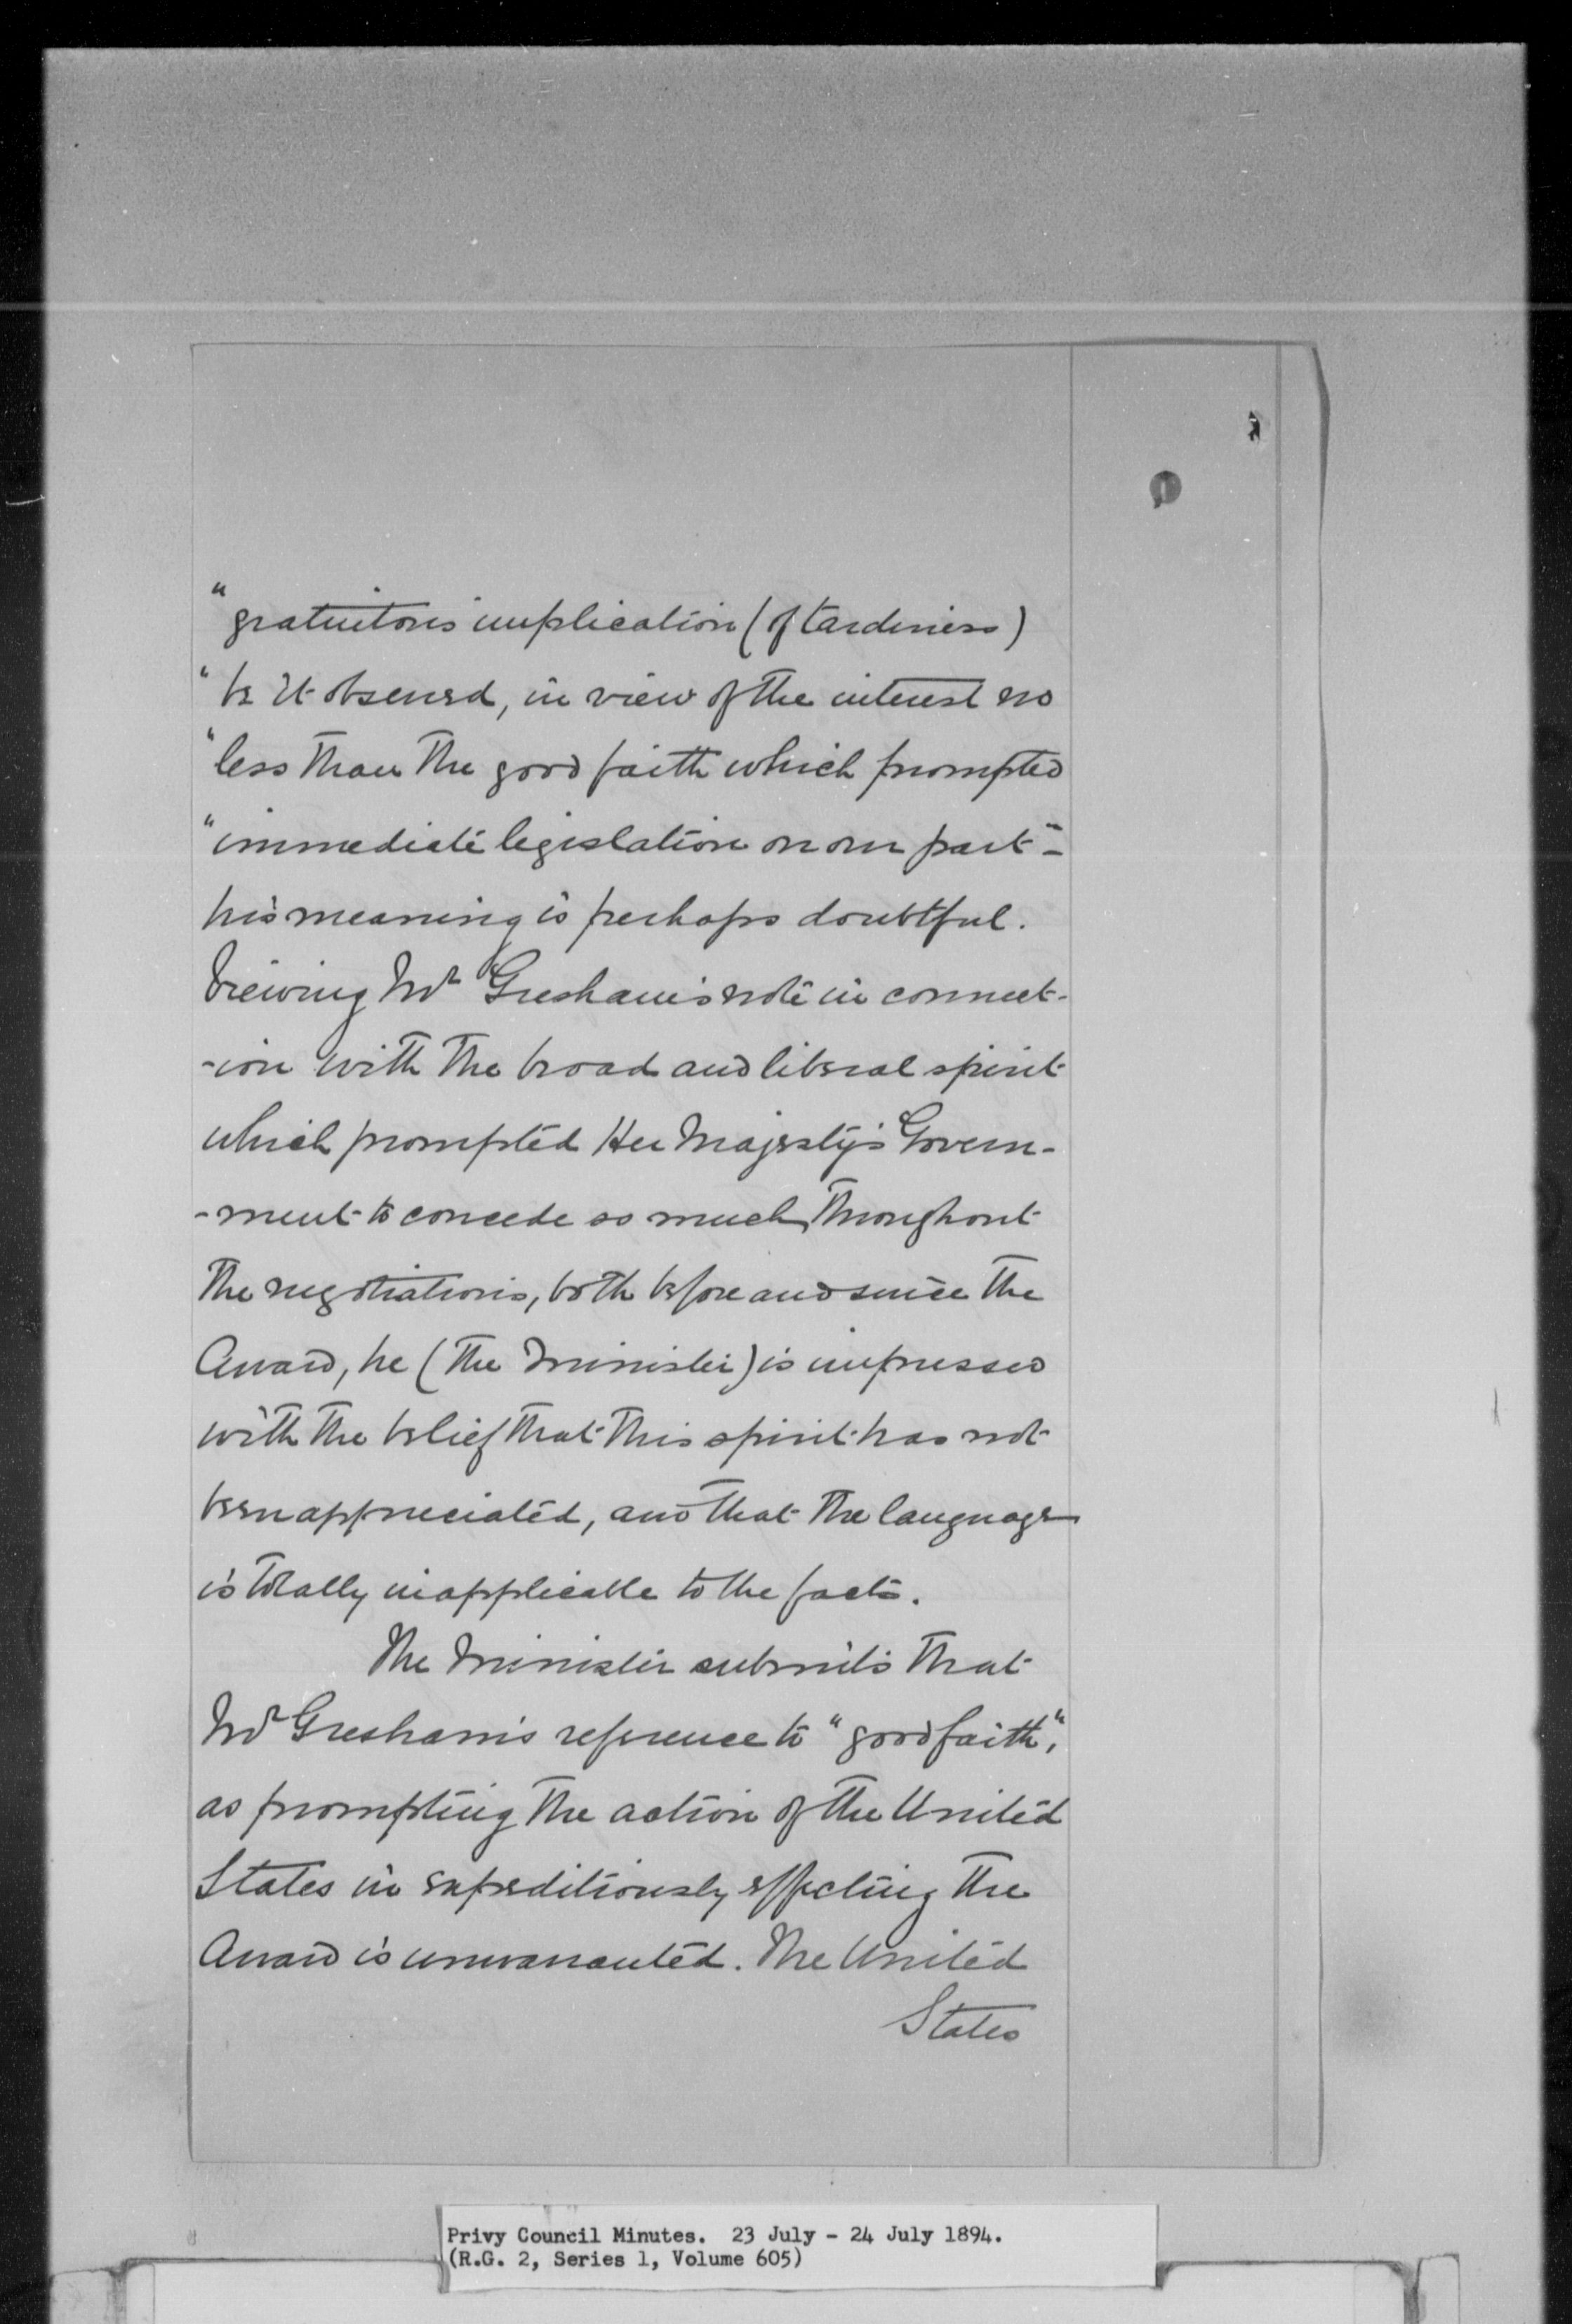 "gratuitous implication (of tardiness)
"be it observed, in view of the interest no
"less than the good faith which prompted
"immediate legislation on our part"-
his meaning is perhaps doubtful.
Viewing Mr Gresham's note in connect-
-ion with the broad and liberal spirit
which prompted Her Majesty's Govern-
-ment to concede so much, throughout
the negotiations, both before and since the
Award, he (the Minister) is impressed
with the belief that this spirit has not
been appreciated, and that the language
is totally inapplicable to the facts.
The Minister submits that
Mr Gresham's reference to "good faith",
as prompting the action of the United
States in expeditiously effecting the
Award is unwarranted. The United
States
Privy Council Minutes. 23 July - 24 July 1894.
(R.G. 2, Series 1, Volume 605)